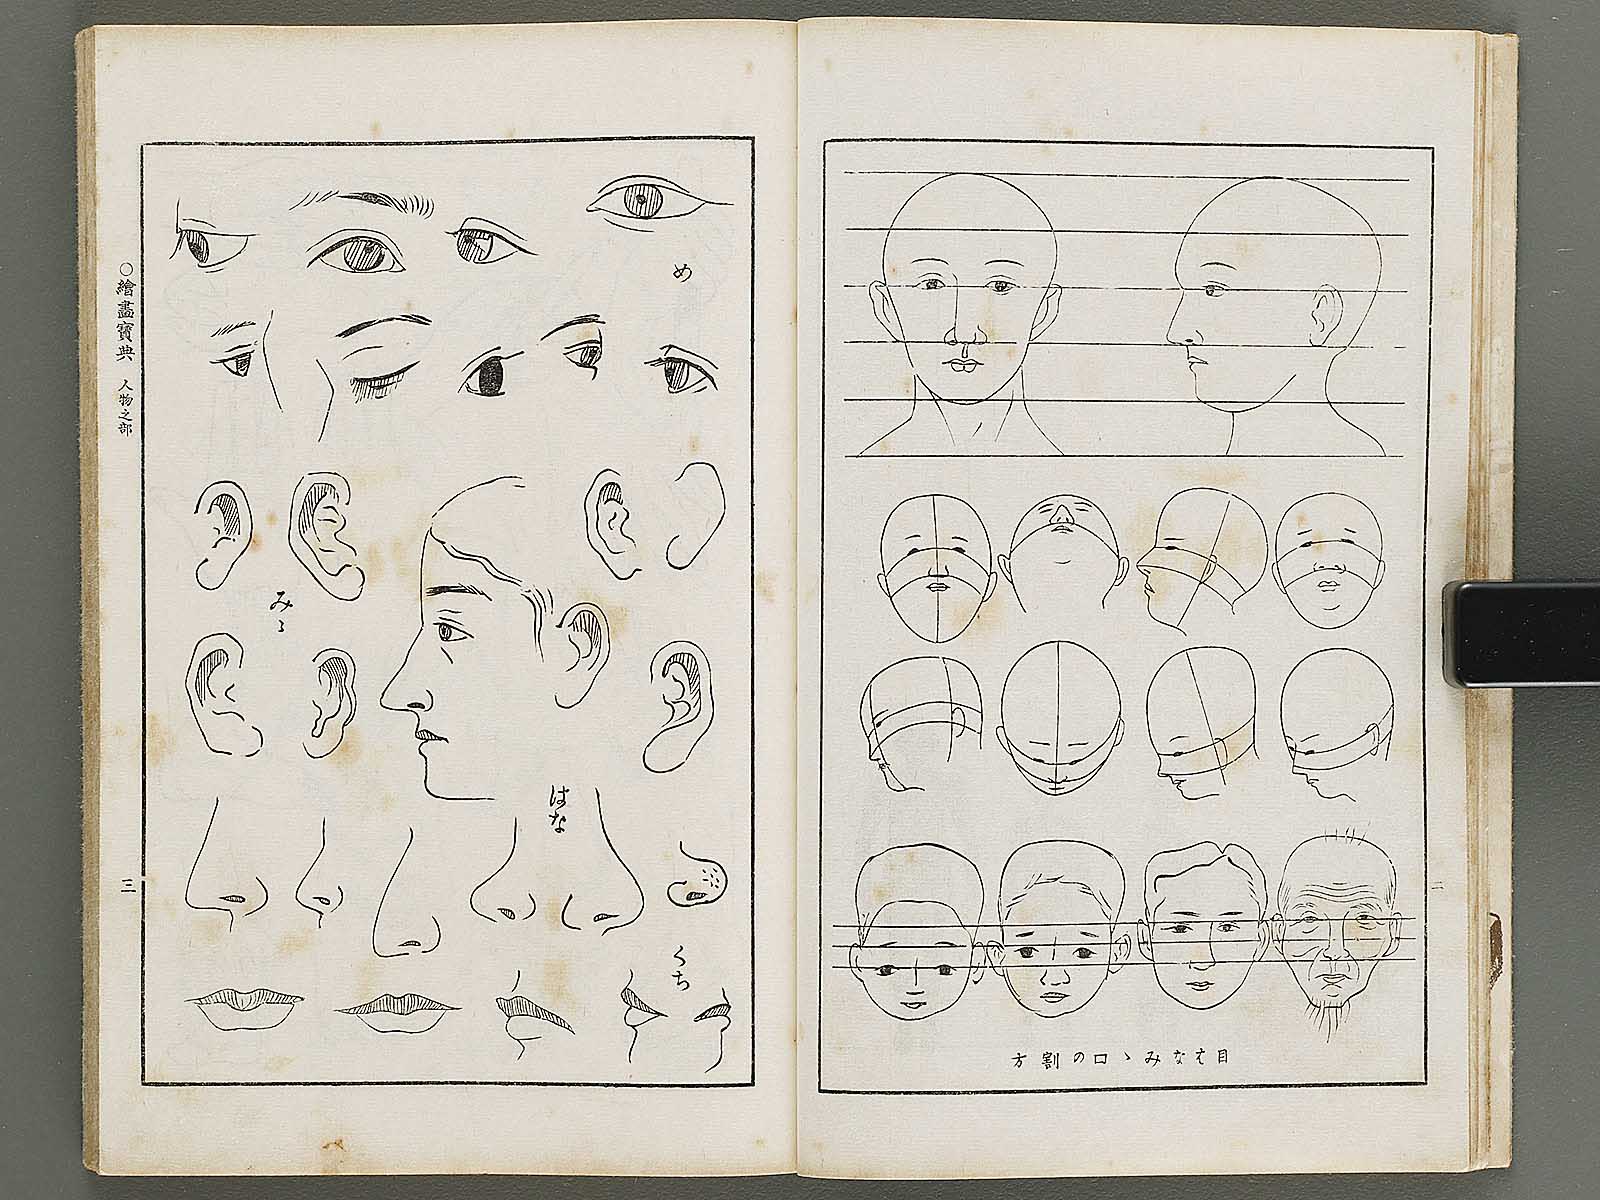 目はなみゝ口の割方
二
め
みゝ
はな
くち
○繪畫寳典 人物之部
三